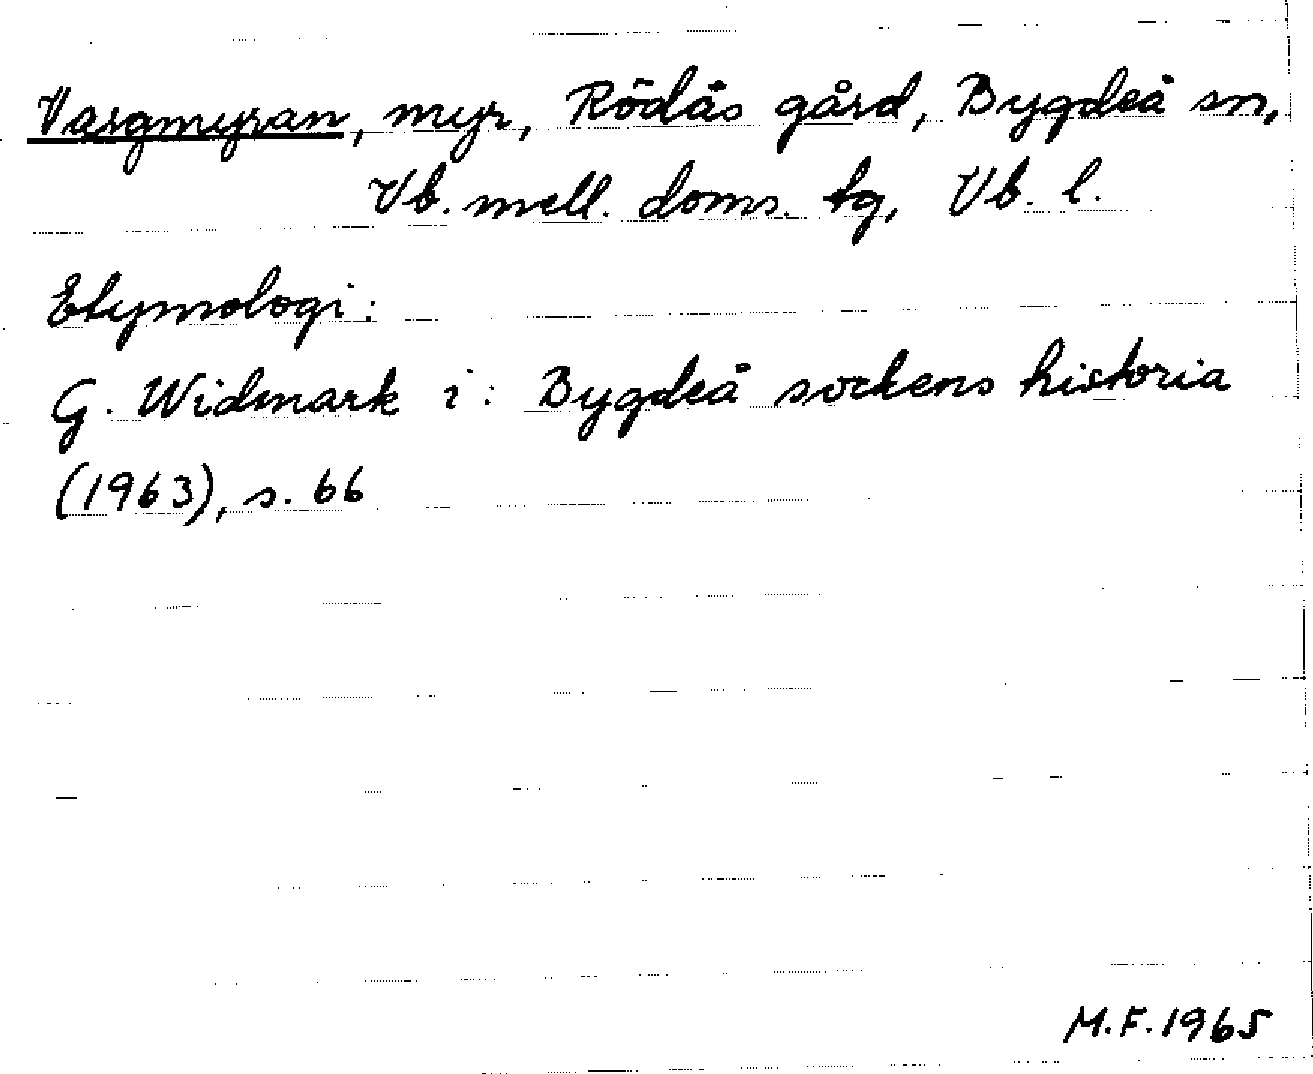 Vargmyran, myr, Rödås gård, Bygdeå sn,
Vb. mell. doms. tg, Vb. l.
Etymologi:
G. Widmark i: Bygdeå sockens historia
(1963), s. 66
M.F. 1965